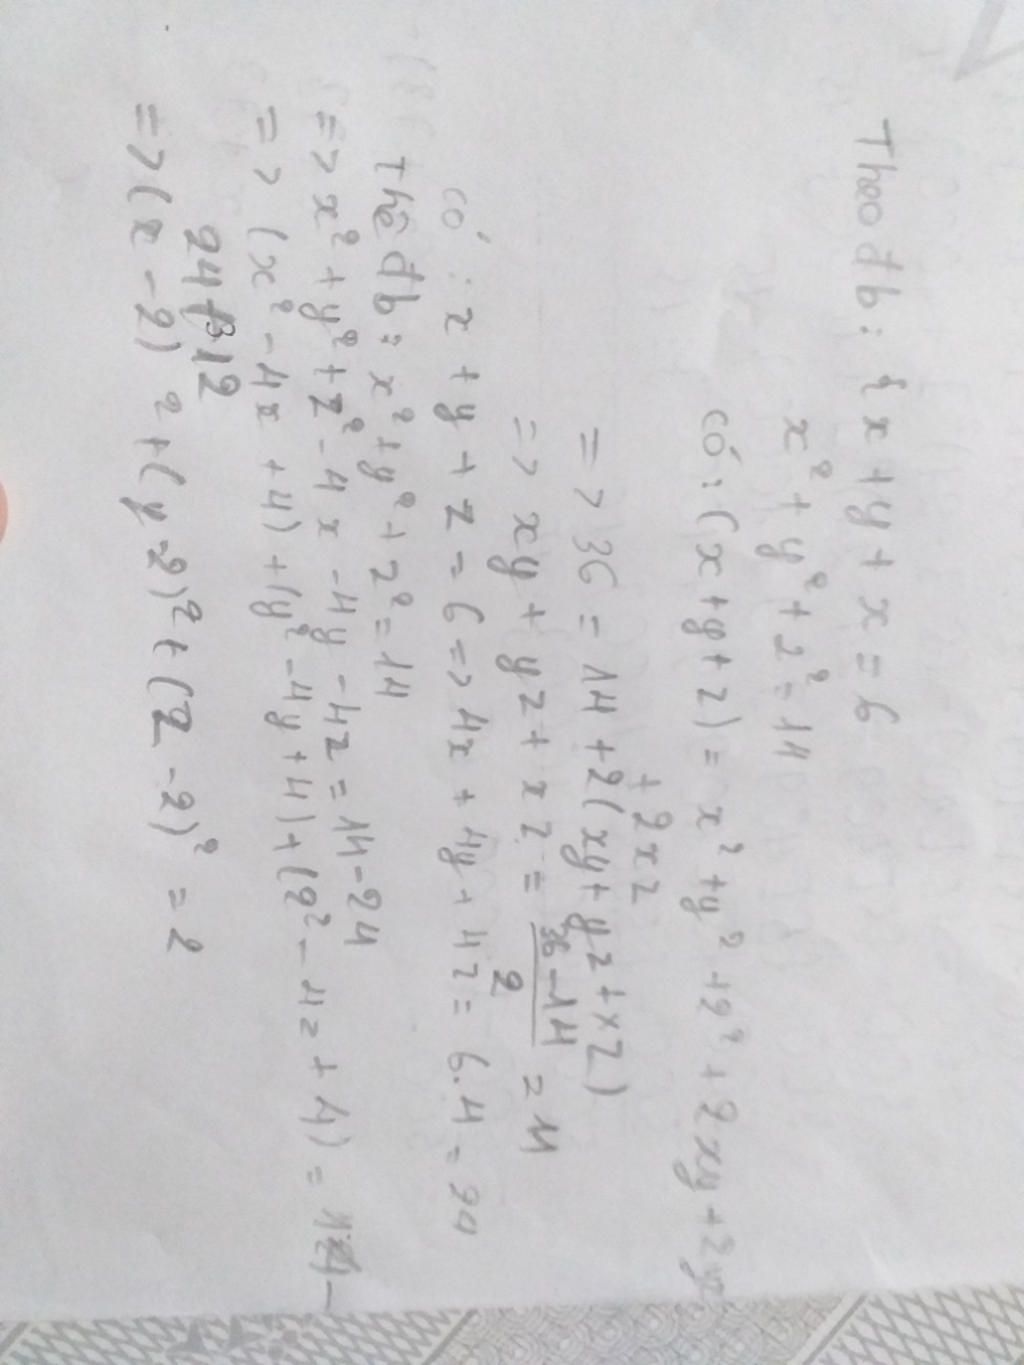 Theo đb: { x + y + x = 6
x² + y² + z² = 14
có: (x + y + z) = x² + y² + z² + 2xy + 2yz
+ 2xz
=> 36 = 14 + 2(xy + yz + xz)
=> xy + yz + xz = (36 - 14)/2 = 11
có: x + y + z = 6 => 4x + 4y + 4z = 6.4 = 24
Theo đb: x² + y² + z² = 14
=> x² + y² + z² - 4x - 4y - 4z = 14 - 24
=> (x² - 4x + 4) + (y² - 4y + 4) + (z² - 4z + 4) = 14 -
24 + 12
=> (x - 2)² + (y - 2)² + (z - 2)² = 2